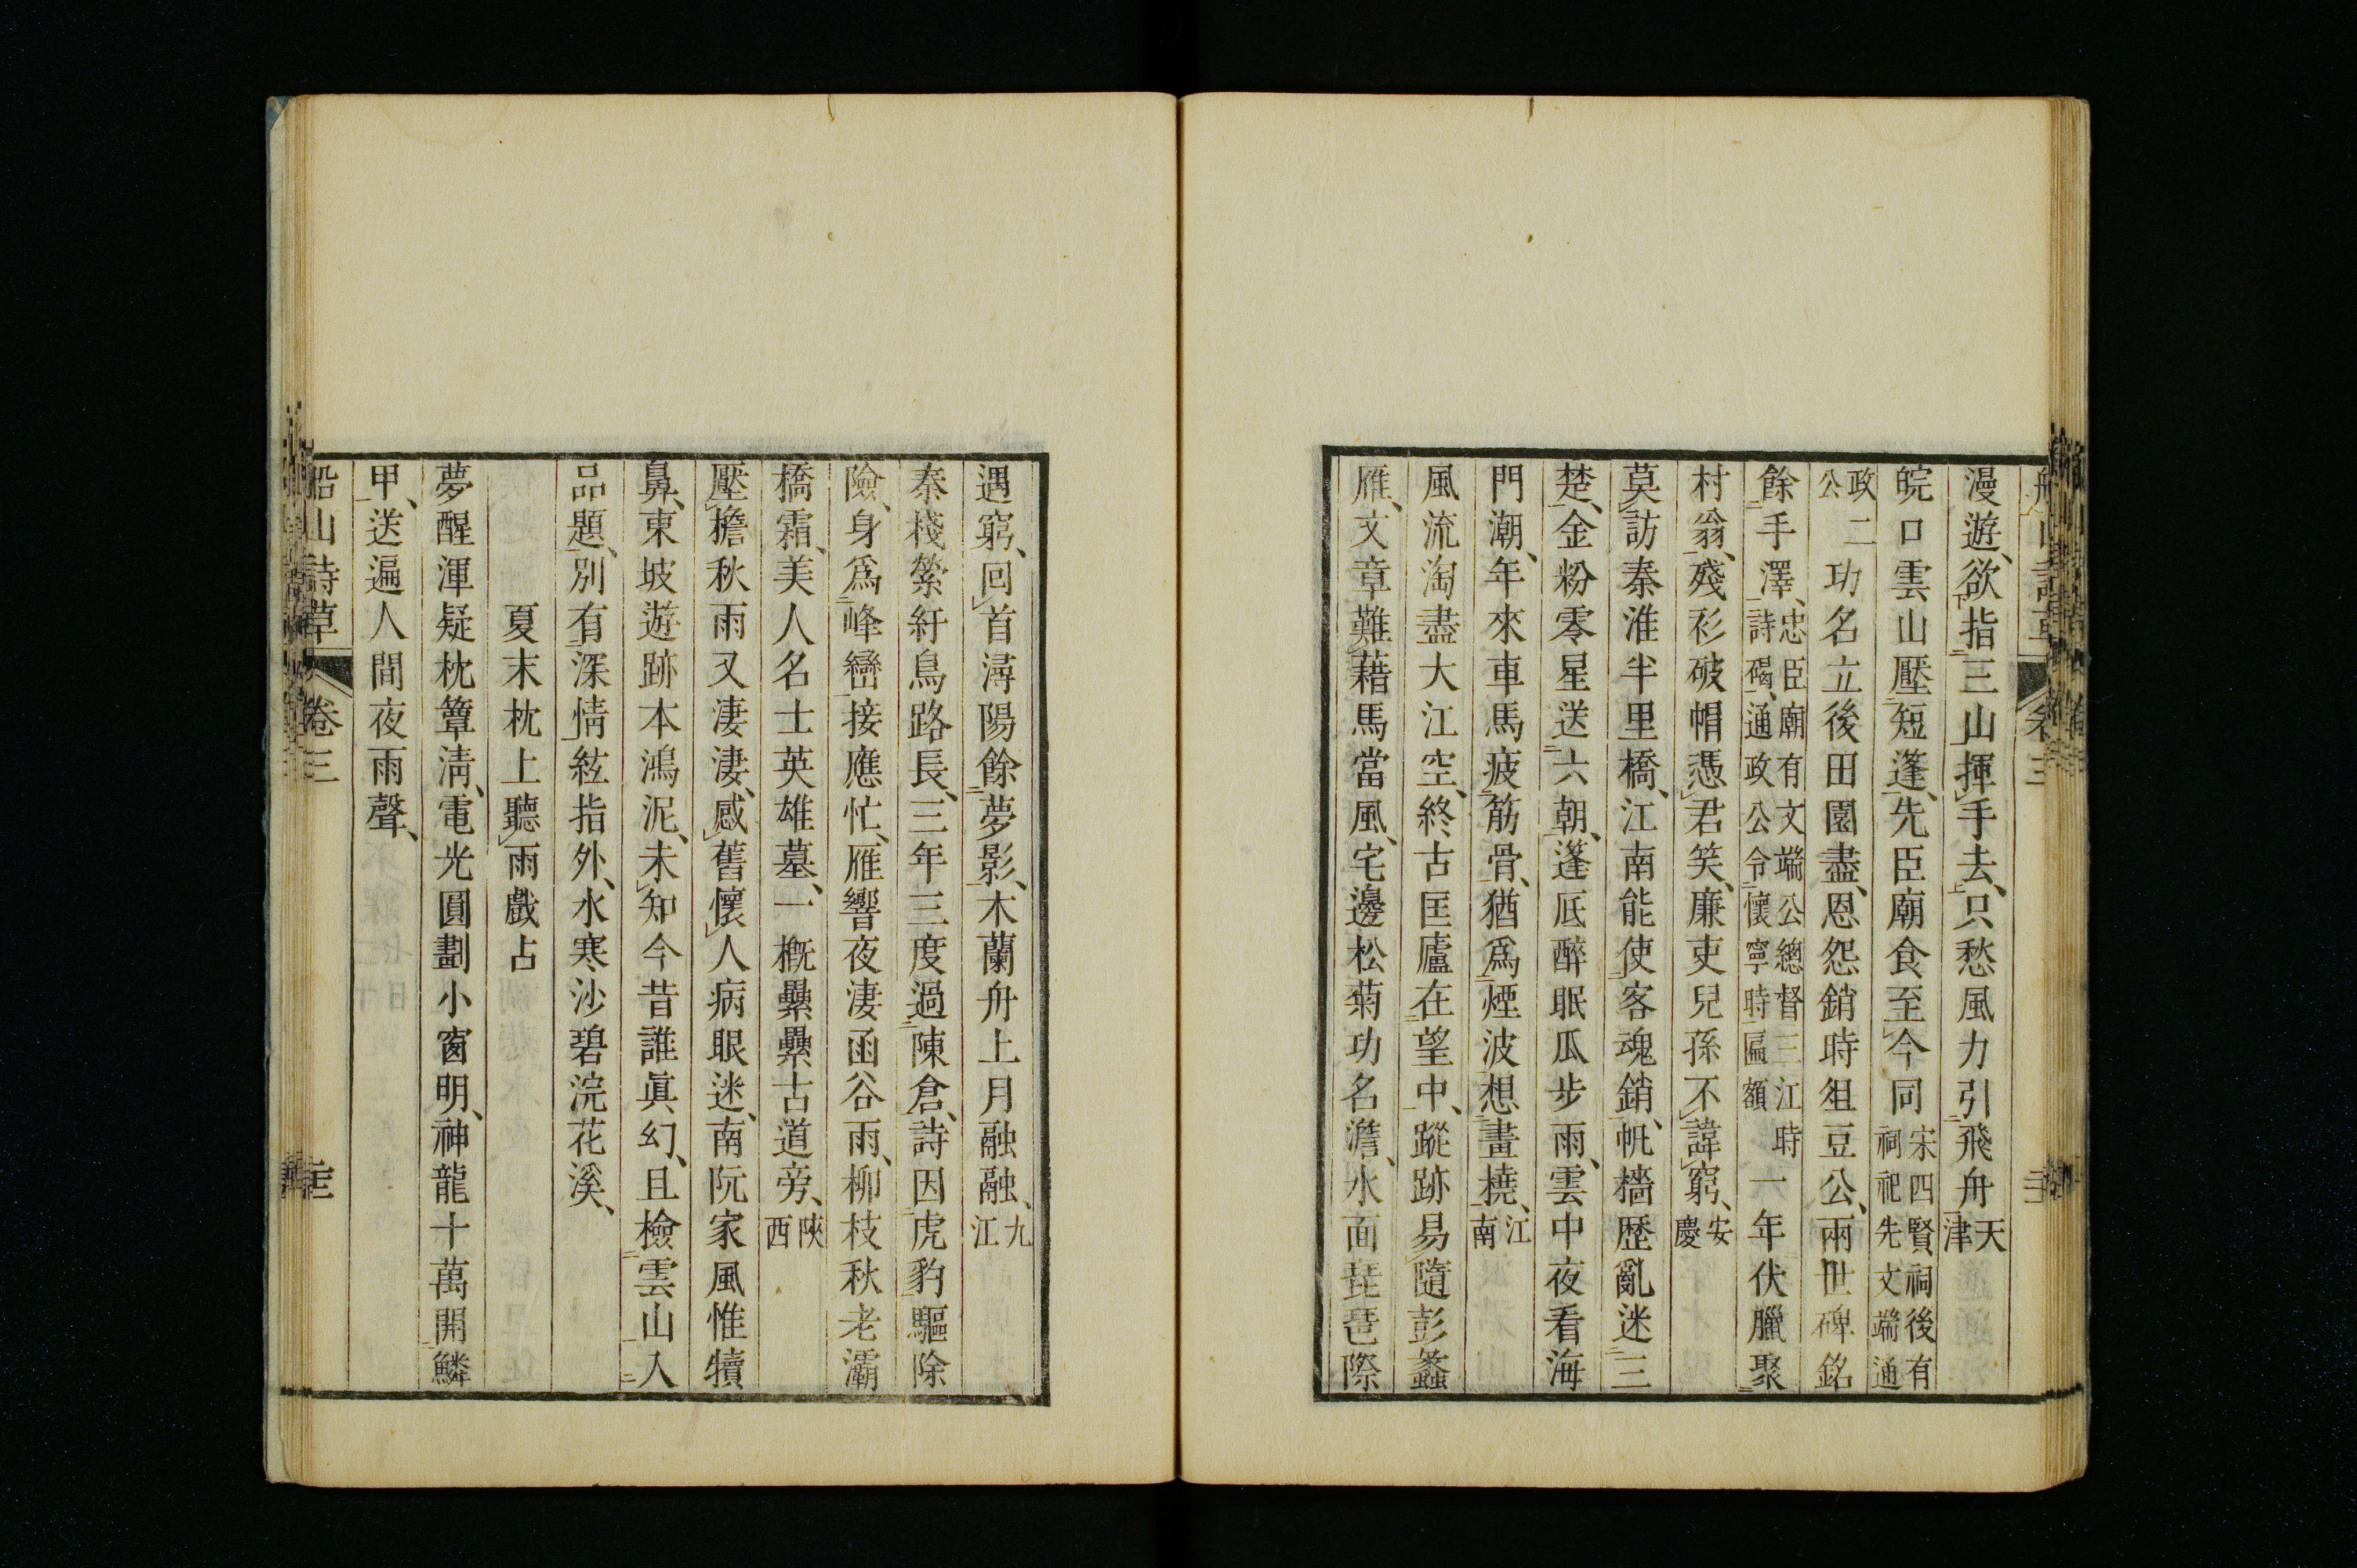 船山詩草 卷三
漫遊、欲指三山揮手去、只愁風力引飛舟 天津
皖口雲山壓短蓬、先臣廟食至今同 宋四賢祠後有祠祀先文端通
政二公 功名立後田園盡、恩怨銷時俎豆公、兩世碑銘
餘手澤、忠臣廟有文端公總督三江時詩碣、通政公令懷寧時匾額 一年伏臘聚
村翁、殘衫破帽憑君笑、廉吏兒孫不諱窮、安慶
莫訪秦淮半里橋、江南能使客魂銷、帆檣歷亂迷三
楚、金粉零星送六朝、蓬底醉眠瓜步雨、雲中夜看海
門潮、年來車馬疲筋骨、猶爲煙波想畫橈、江南
風流淘盡大江空、終古匡廬在望中、蹤跡易隨彭蠡
雁、文章難藉馬當風、宅邊松菊功名澹、水面琵琶際
遇窮、回首潯陽餘夢影、木蘭舟上月融融、九江
秦棧縈紆鳥路長、三年三度過陳倉、詩因虎豹驅除
險、身爲峰巒接應忙、雁響夜淒函谷雨、柳枝秋老灞
橋霜、美人名士英雄墓、一概纍纍古道旁、陝西
壓檐秋雨又淒淒、感舊懷人病眼迷、南阮家風惟犢
鼻、東坡遊跡本鴻泥、未知今昔誰眞幻、且檢雲山入
品題、別有深情絃指外、水寒沙碧浣花溪、
夏末枕上聽雨戲占
夢醒渾疑枕簟淸、電光圓劃小窗明、神龍十萬開鱗
甲、送遍人間夜雨聲、
船山詩草 卷三